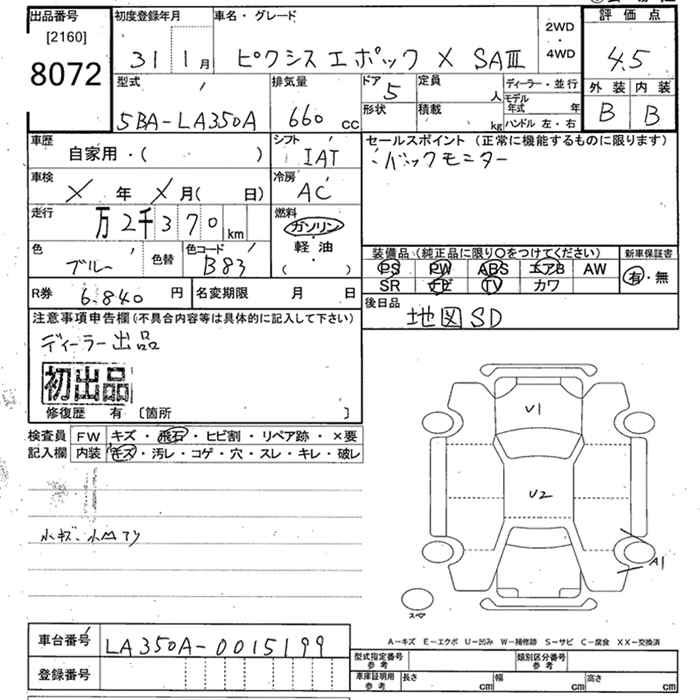 出品番号 初度登録年月 車名・グレード 2WD・4WD 評価点
[2160]
8072 31 1月 ピクシスエポック X SAⅢ 4.5
型式 排気量 ドア 定員 ディーラー・並行 外装 内装
5BA-LA350A 660 cc 5 人 モデル年式 年 B B
形状 積載 kg ハンドル 左・右
車歴 シフト セールスポイント (正常に機能するものに限ります)
自家用・( ) IAT バックモニター
車検 冷房
X 年 X 月( 日) AC
走行 燃料
万2千370 km ガソリン・軽油・( )
色 色替 色コード 装備品 (純正品に限り○をつけてください) 新車保証書
ブルー B83 PS PW ABS エアB AW 有・無
SR ナビ TV カワ
R券 6.840 円 名変期限 月 日 後日品
地図SD
注意事項申告欄(不具合内容等は具体的に記入して下さい)
ディーラー出品
初出品
修復歴 有 〔箇所 〕
検査員 FW キズ・飛石・ヒビ割・リペア跡・×要
記入欄 内装 キズ・汚レ・コゲ・穴・スレ・キレ・破レ
U1
U2
小キズ、小凹アリ
A1
スペア
A-キズ E-エクボ U-凹み W-補修跡 S-サビ C-腐食 XX-交換済
車台番号 LA350A-0015199
型式指定番号 参考 類別区分番号 参考
登録番号 車庫証明用 参考 長さ cm 幅 cm 高さ cm